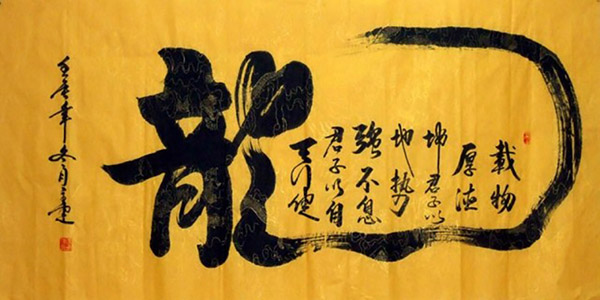 龍
天行健
君子以自
强不息
地勢
坤君子以
厚德
載物
壬辰年冬月